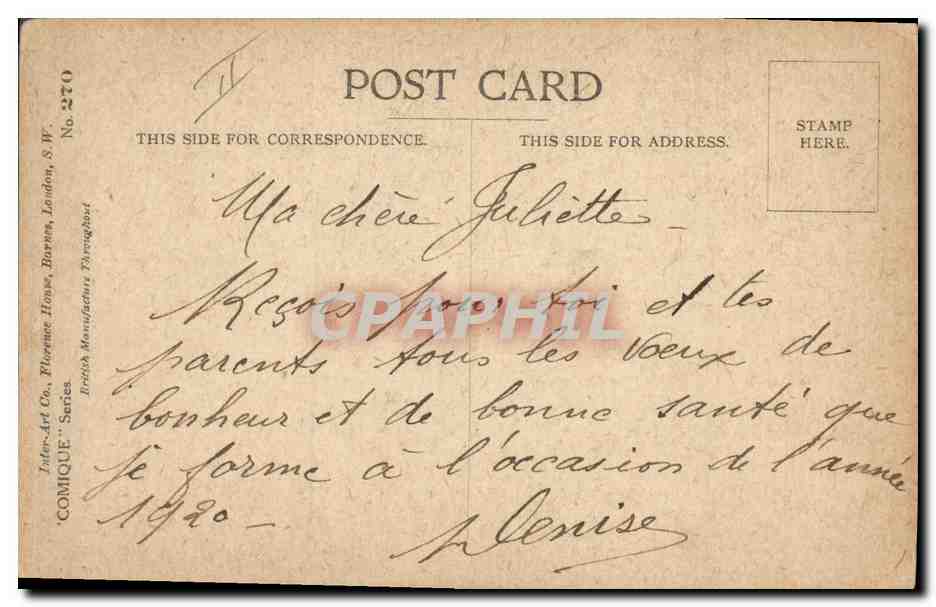 II
POST CARD
THIS SIDE FOR CORRESPONDENCE.
THIS SIDE FOR ADDRESS.
STAMP
HERE.
Ma chère Juliette
Reçois pour toi et tes
parents tous les vœux de
bonheur et de bonne santé que
je forme à l'occasion de l'année
1920 –
Denise
CPAPHIL
Inter-Art Co., Florence House, Barnes, London, S.W.
"COMIQUE" Series.
No. 270
British Manufacture Throughout